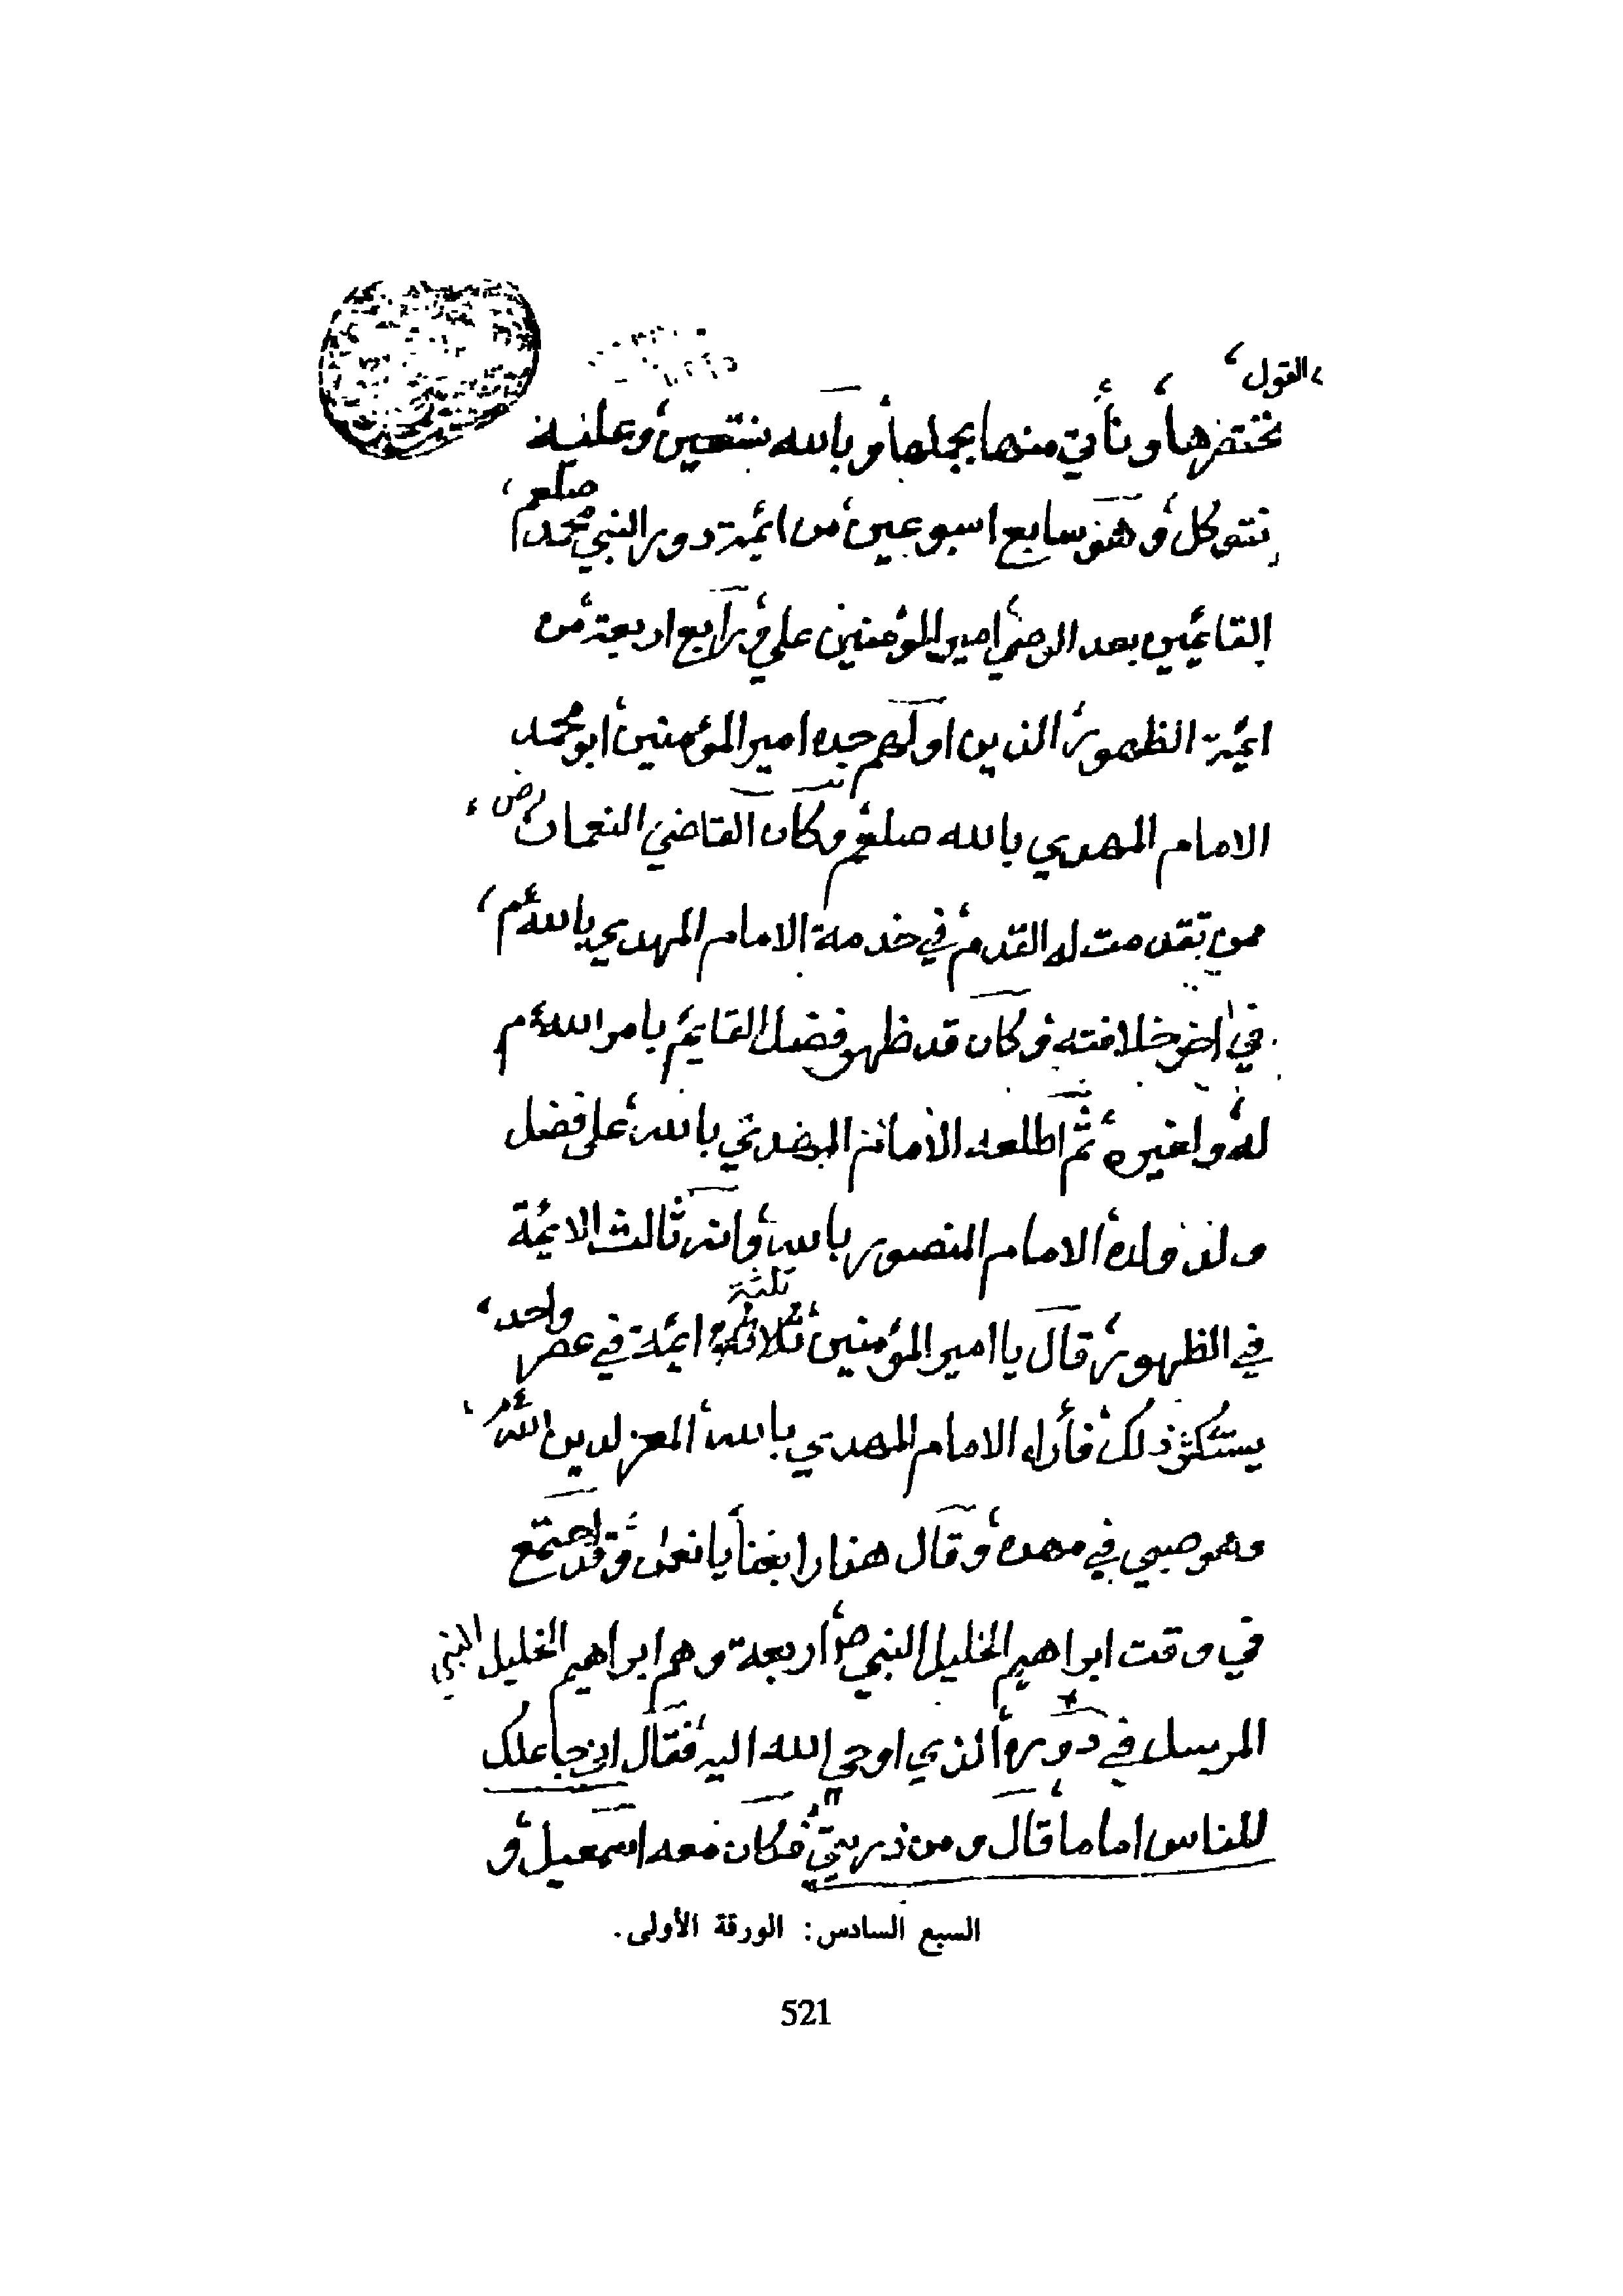 القول
نختصرها ونأتي منها بجملها وبالله نستعين وعليه
نتوكل وهو سابع اسبوعين من ائمة دور النبي محمد صلعم
القائمين بعد الوصي امير المؤمنين علي ورابع اربعة من
ائمة الظهور الذين اولهم جده امير المؤمنين ابو محمد
الامام المهدي بالله صلع م وكان القاضي النعمان رض
ممن تقدمت له القدم في خدمة الامام المهدي بالله ع م
في اخر خلافته وكان قد ظهر فضل القايم بامر الله ع م
له ولغيره ثم اطلعه الامام المهدي بالله على فضل
ولد ولده الامام المنصور بالله وانه ثالث الائمة
في الظهور قال يا امير المؤمنين ثلاثة ثلثة ائمة في عصر واحد
يستكثر ذلك فأراه الامام المهدي بالله المعز لدين الله ع م
وهو صبي في مهده وقال هذا رابعنا يا نعمن وقد اجتمع
في وقت ابراهيم الخليل النبي ص اربعة وهم ابراهيم الخليل النبي
المرسل في دوره الذي اوحى الله اليه فقال اني جاعلك
للناس اماما قال ومن ذريتي فكان معه اسمعيل و
السبع السادس: الورقة الأولى.
521